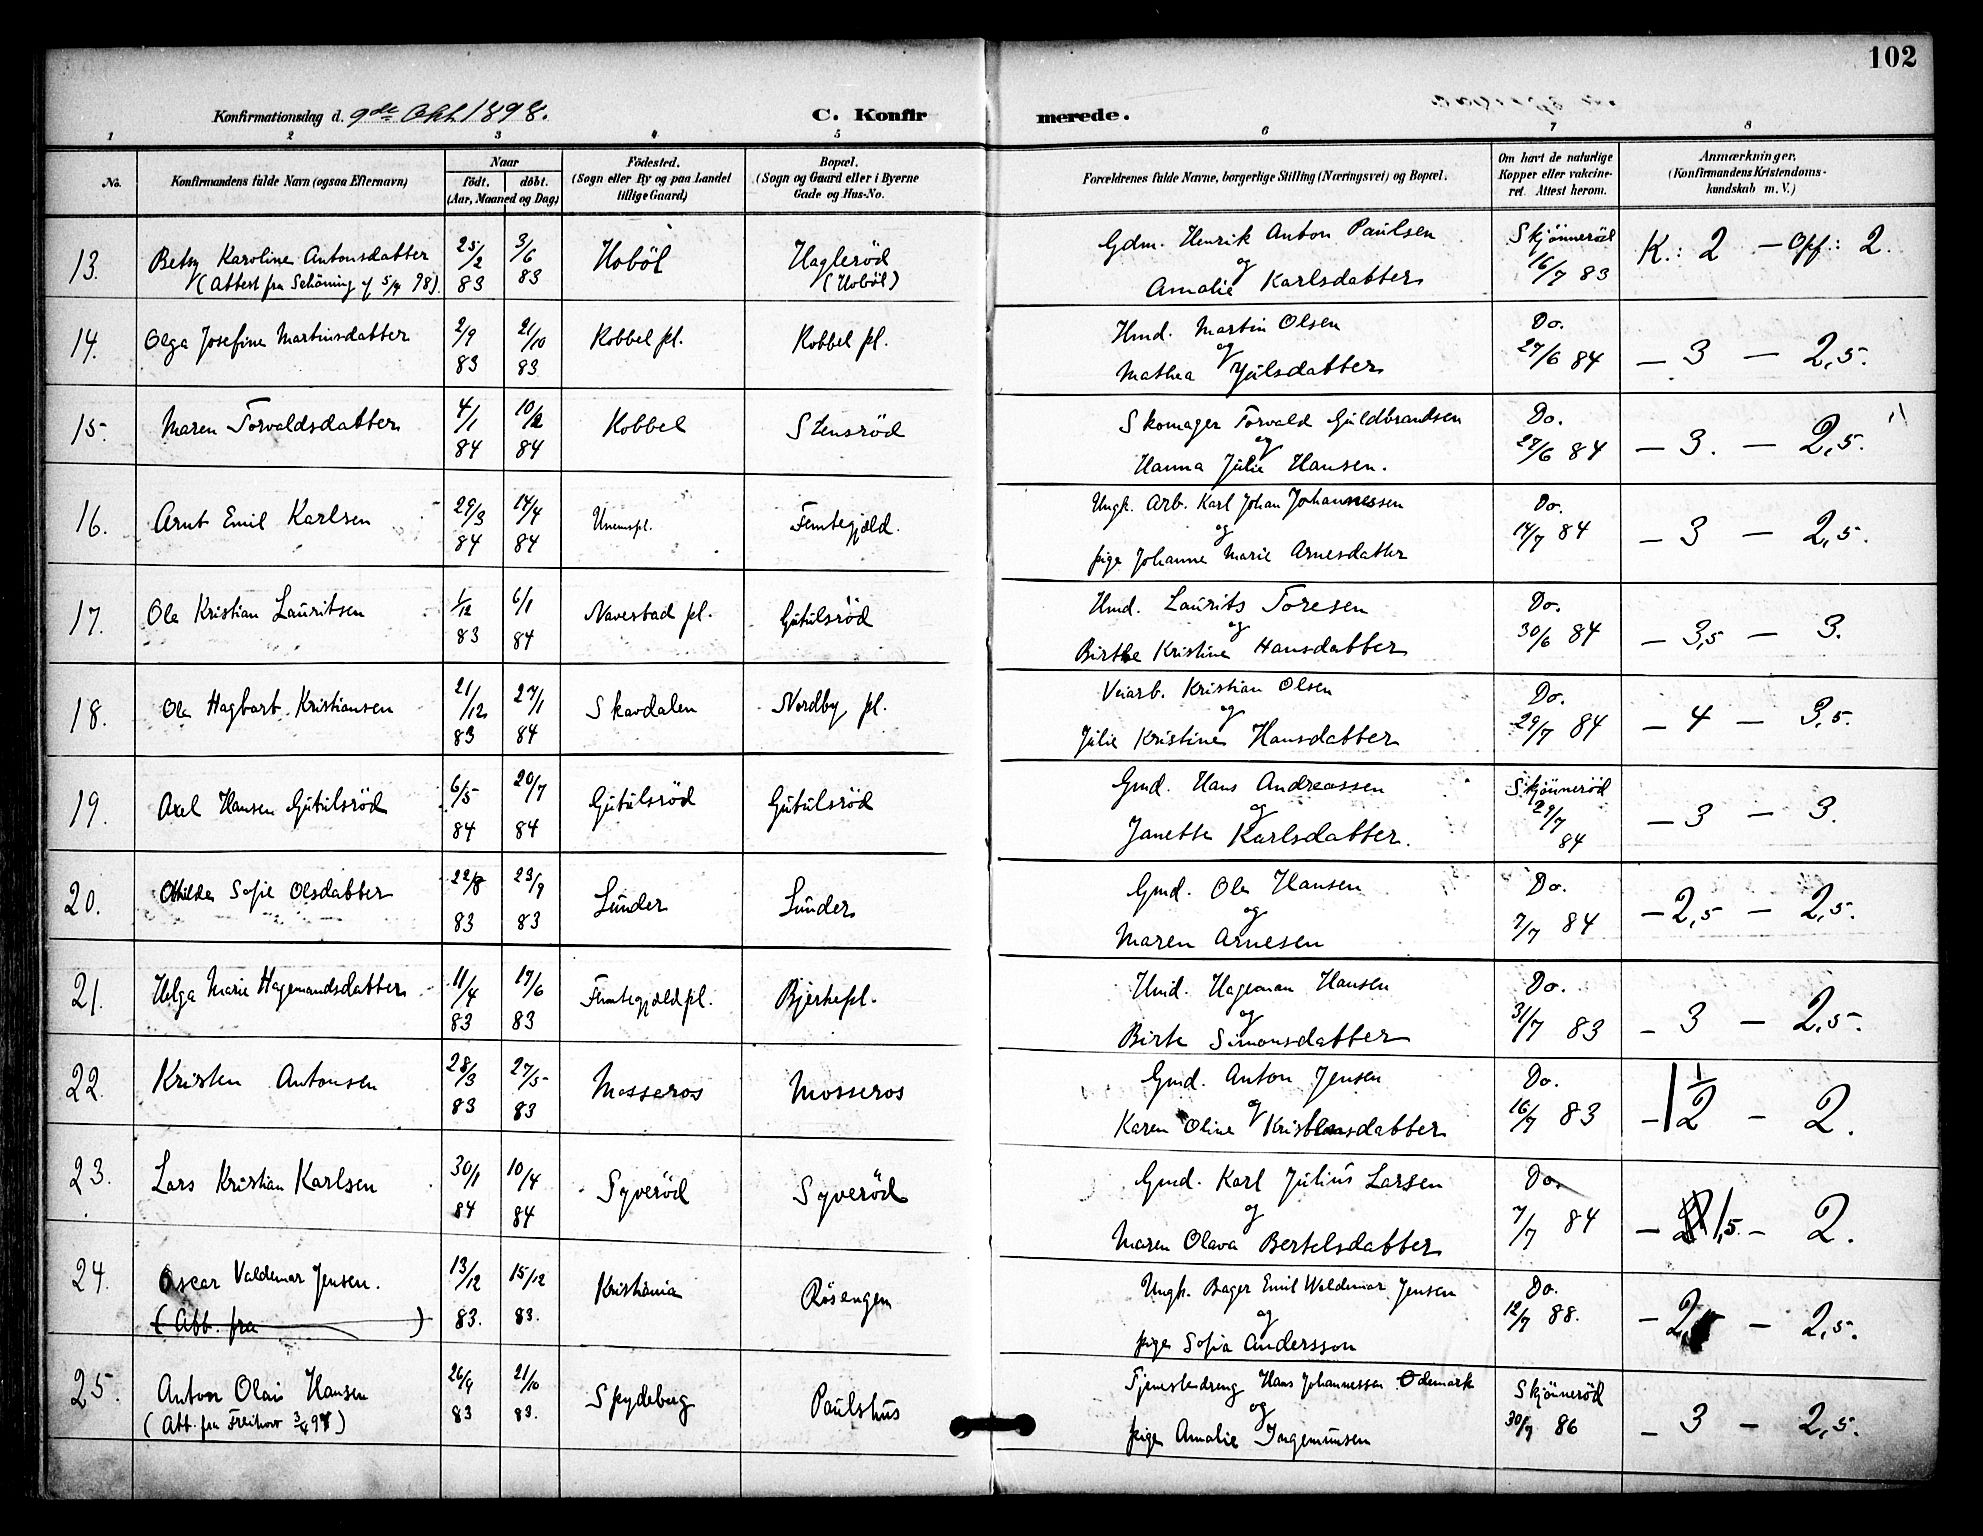 102
Konfirmationsdag d. 9de Okt 1898.
C. Konfirmerede.
1 2 3 4 5 6 7 8
No.
Konfirmandens fulde Navn (ogsaa Efternavn)
Naar
født. døbt.
(Aar, Maaned og Dag)
Födested.
(Sogn eller By og paa Landet
tillige Gaard)
Bopæl.
(Sogn og Gaard eller i Byerne
Gade og Hus-No.
Forældrenes fulde Navne, borgerlige Stilling (Næringsvei) og Bopæl.
Om havt de naturlige
Kopper eller vaccine-
ret. Attest herom.
Anmærkninger.
(Konfirmandens Kristendoms-
kundskab m. V.)
13. Betsy Karoline Antonsdatter 25/2 83 3/6 83 Hobøl Haglerød (Hobøl) Gdm. Henrik Anton Paulsen Skjønnerød 16/7 83 K.: 2 – Opf.: 2.
(Attest fra Schöning af 5/4 98) og
Amalie Karlsdatter
14. Olga Josefine Martinsdatter 2/9 83 21/10 83 Kobbel pl. Kobbel pl. Hmd. Martin Olsen Do. 27/6 84 – 3 – 2,5.
og
Mathea Julsdatter
15. Maren Torvaldsdatter 4/1 84 10/2 84 Kobbel Stensrød Skomager Torvald Guldbrandsen Do. 27/6 84 – 3. – 2,5.
og
Hanna Julie Hansen.
16. Arnt Emil Karlsen 29/3 84 14/4 84 Unumspl. Femtegjæld. Ungk. Arb. Karl Johan Johannessen Do. 14/7 84 – 3 – 2,5.
og
pige Johanne Marie Arnesdatter
17. Ole Kristian Lauritsen 1/12 83 6/1 84 Navestad pl. Gutulsrød Hmd. Laurits Toresen Do. 30/6 84 – 3,5 – 3.
og
Birthe Kristine Hansdatter
18. Ole Hagbart Kristiansen 21/12 83 27/1 84 Skavdalen Nordby pl. Veiarb. Kristian Olsen Do. 29/7 84 – 4 – 3,5.
og
Julie Kristine Hansdatter
19. Axel Hansen Gutulsrød 6/5 84 20/7 84 Gutulsrød Gutulsrød Gmd. Hans Andreassen Skjønnerød 29/7 84 – 3 – 3.
og
Janette Karlsdatter.
20. Othilde Sofie Olsdatter 22/8 83 23/9 83 Sunder Sunder Gmd. Ole Hansen Do. 7/7 84 – 2,5 – 2,5.
og
Maren Arnesen
21. Helga Marie Hagemandsdatter 11/4 83 17/6 83 Femtegjæld pl. Bjerkepl. Hmd. Hageman Hansen Do. 31/7 83 – 3 – 2,5.
og
Birte Simonsdatter
22. Kristen Antonsen 28/3 83 27/5 83 Mosseros Mosseros Gmd. Anton Jensen Do. 16/7 83 – 1 1/2 – 2.
og
Karen Oline Kristensdatter
23. Lars Kristian Karlsen 30/1 84 10/4 84 Syverød Syverød Gmd. Karl Julius Larsen Do. 7/7 84 – 1,5 – 2.
og
Maren Olava Bertelsdatter
24. Oscar Valdemar Jensen. 13/12 83. 15/12 83. Kristiania Røsengen Ungk. Bager Emil Waldemar Jensen Do. 12/7 88. – 2,5 – 2,5.
(Att. fra ) og
pige Sofia Andersson
25. Anton Olai Hansen 26/9 83 21/10 83. Spydeberg Paulshus Tjenestedreng Hans Johannessen Ødemark Skjønnerød 30/9 86 – 3 – 2,5.
(Att. fra Freihow 3/4 98) og
pige Amalie Ingemunsen